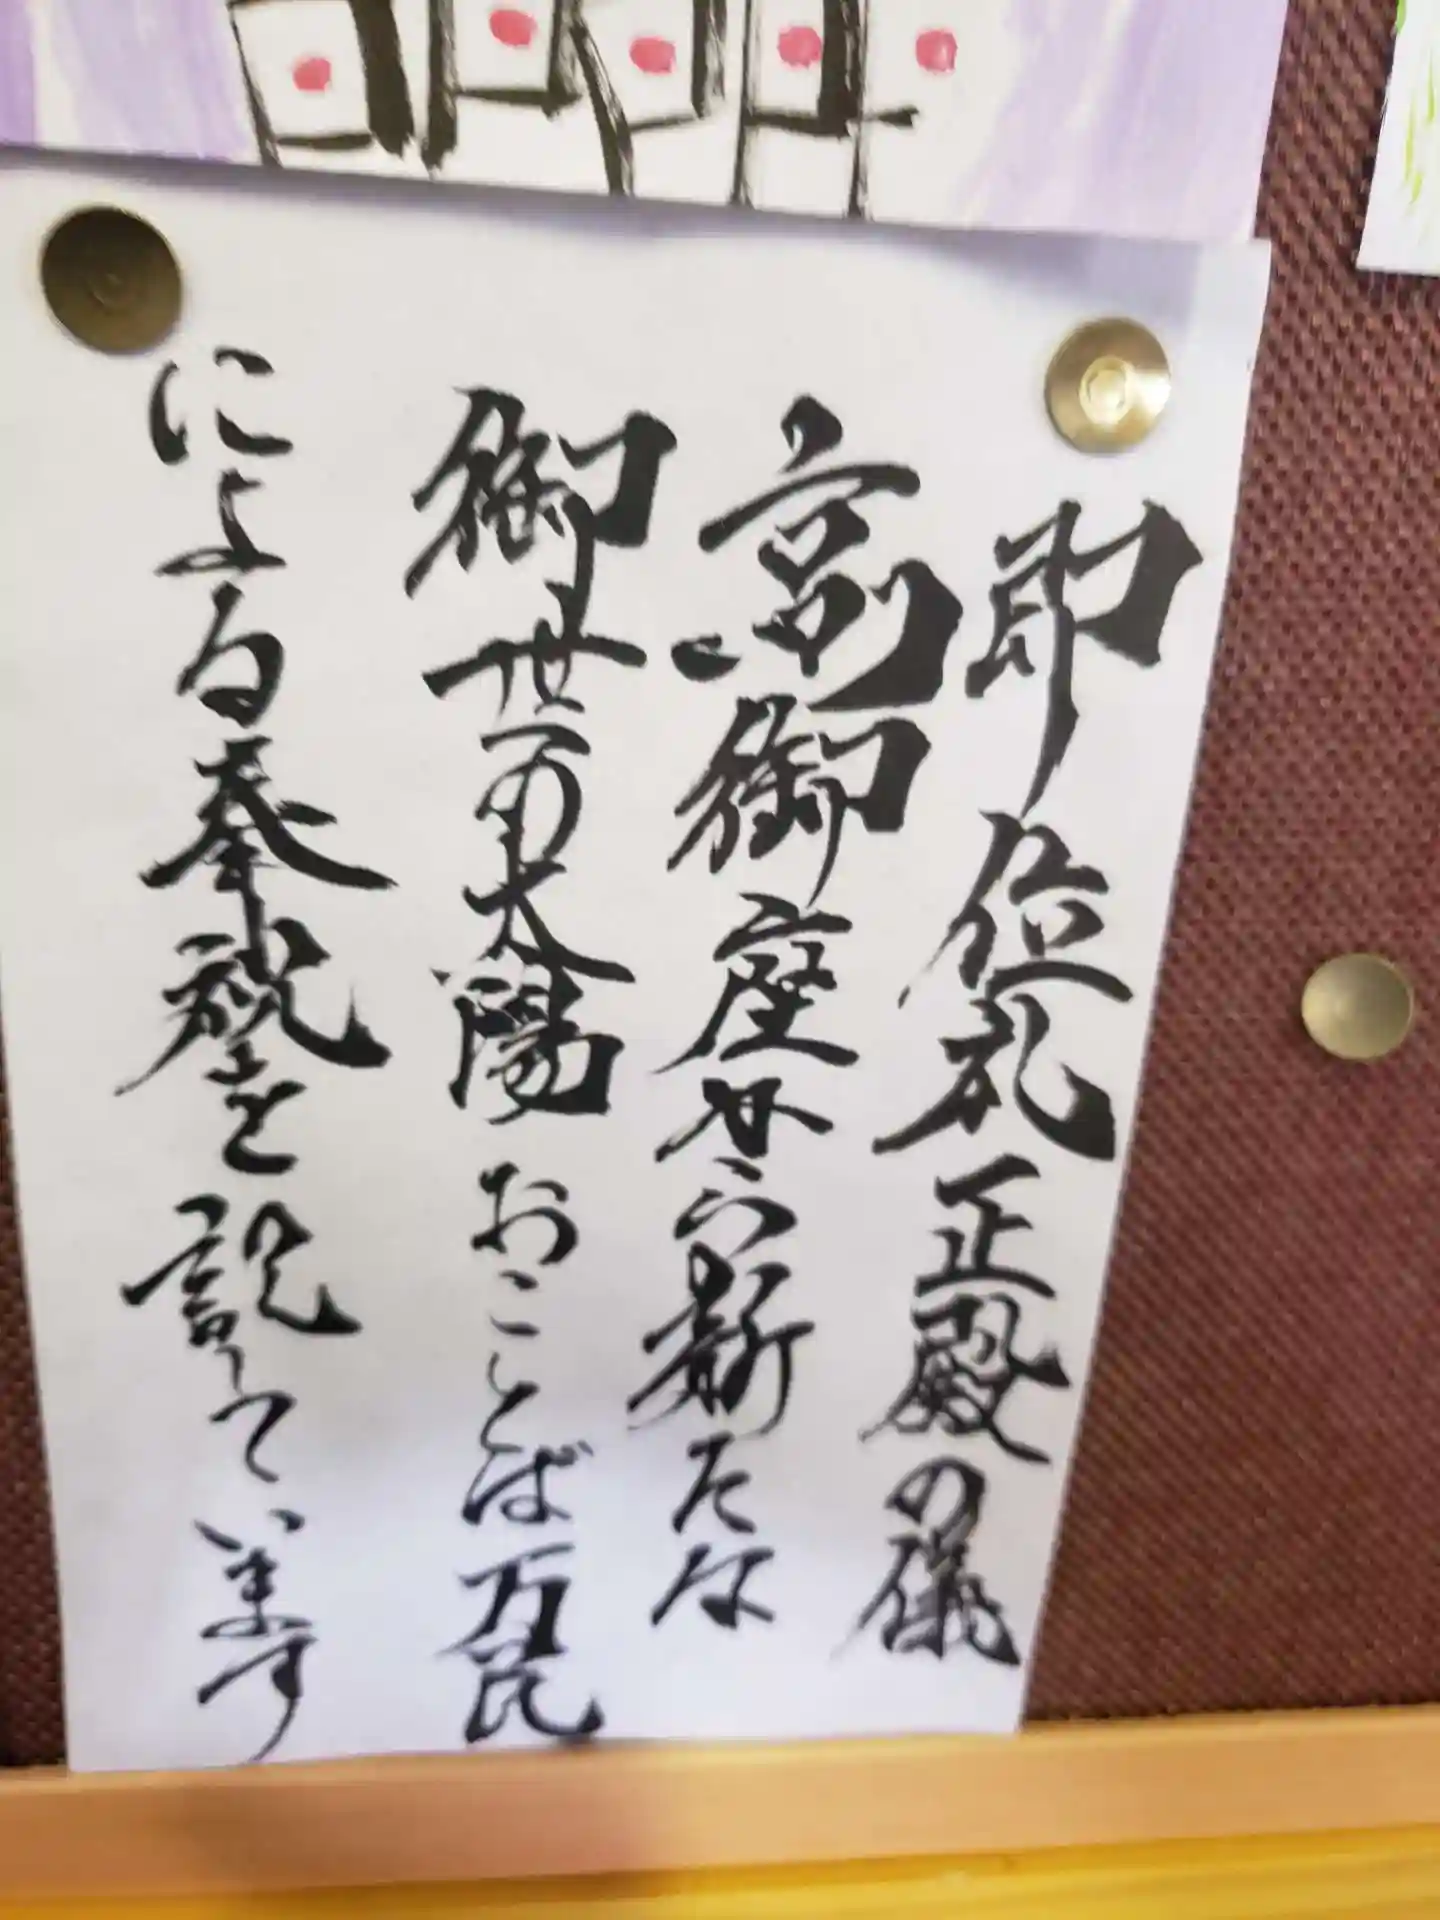 即位礼正殿の儀
高御座から新たな
御世の太陽おことば万民
による奉祝を記しています